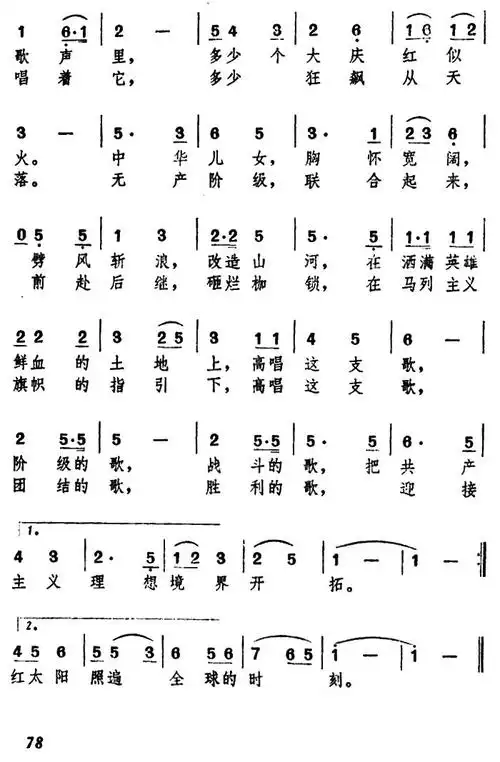 1 6·1 2 — 54 3 2 6 16 12
歌声里，多少个大庆红似
唱着它，多少狂飙从天
3 — 5· 3 6 5 3· 1 23 6
火。中华儿女，胸怀宽阔，
落。无产阶级，联合起来，
05 5 1 3 2·2 2 5· 5 1·1 11
劈风斩浪，改造山河，在洒满英雄
前赴后继，砸烂枷锁，在马列主义
22 2 3 25 3 11 4 5 6 —
鲜血的土地上，高唱这支歌，
旗帜的指引下，高唱这支歌，
2 5·5 5 — 2 5·5 5· 5 6· 5
阶级的歌，战斗的歌，把共产
团结的歌，胜利的歌，迎接
1.
4 3 2· 5 12 3 2 5 1 — 1 —
主义理想境界开拓。
2.
45 6 55 3 6 56 7 65 1 — 1 —
红太阳照遍全球的时刻。
78